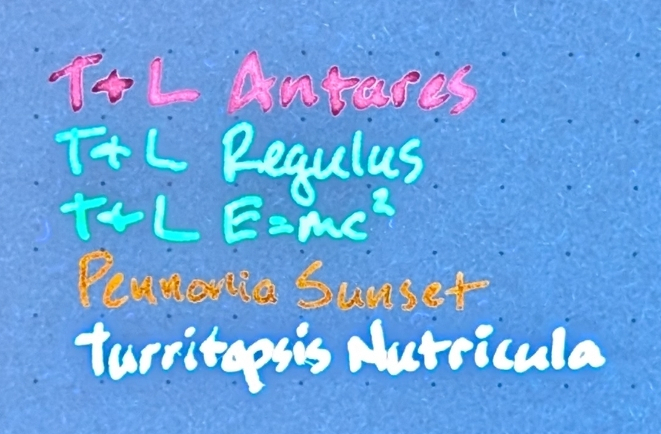 T+L Antares
T+L Regulus
T+L E=mc²
Pennonia Sunset
Turritopsis Nutricula